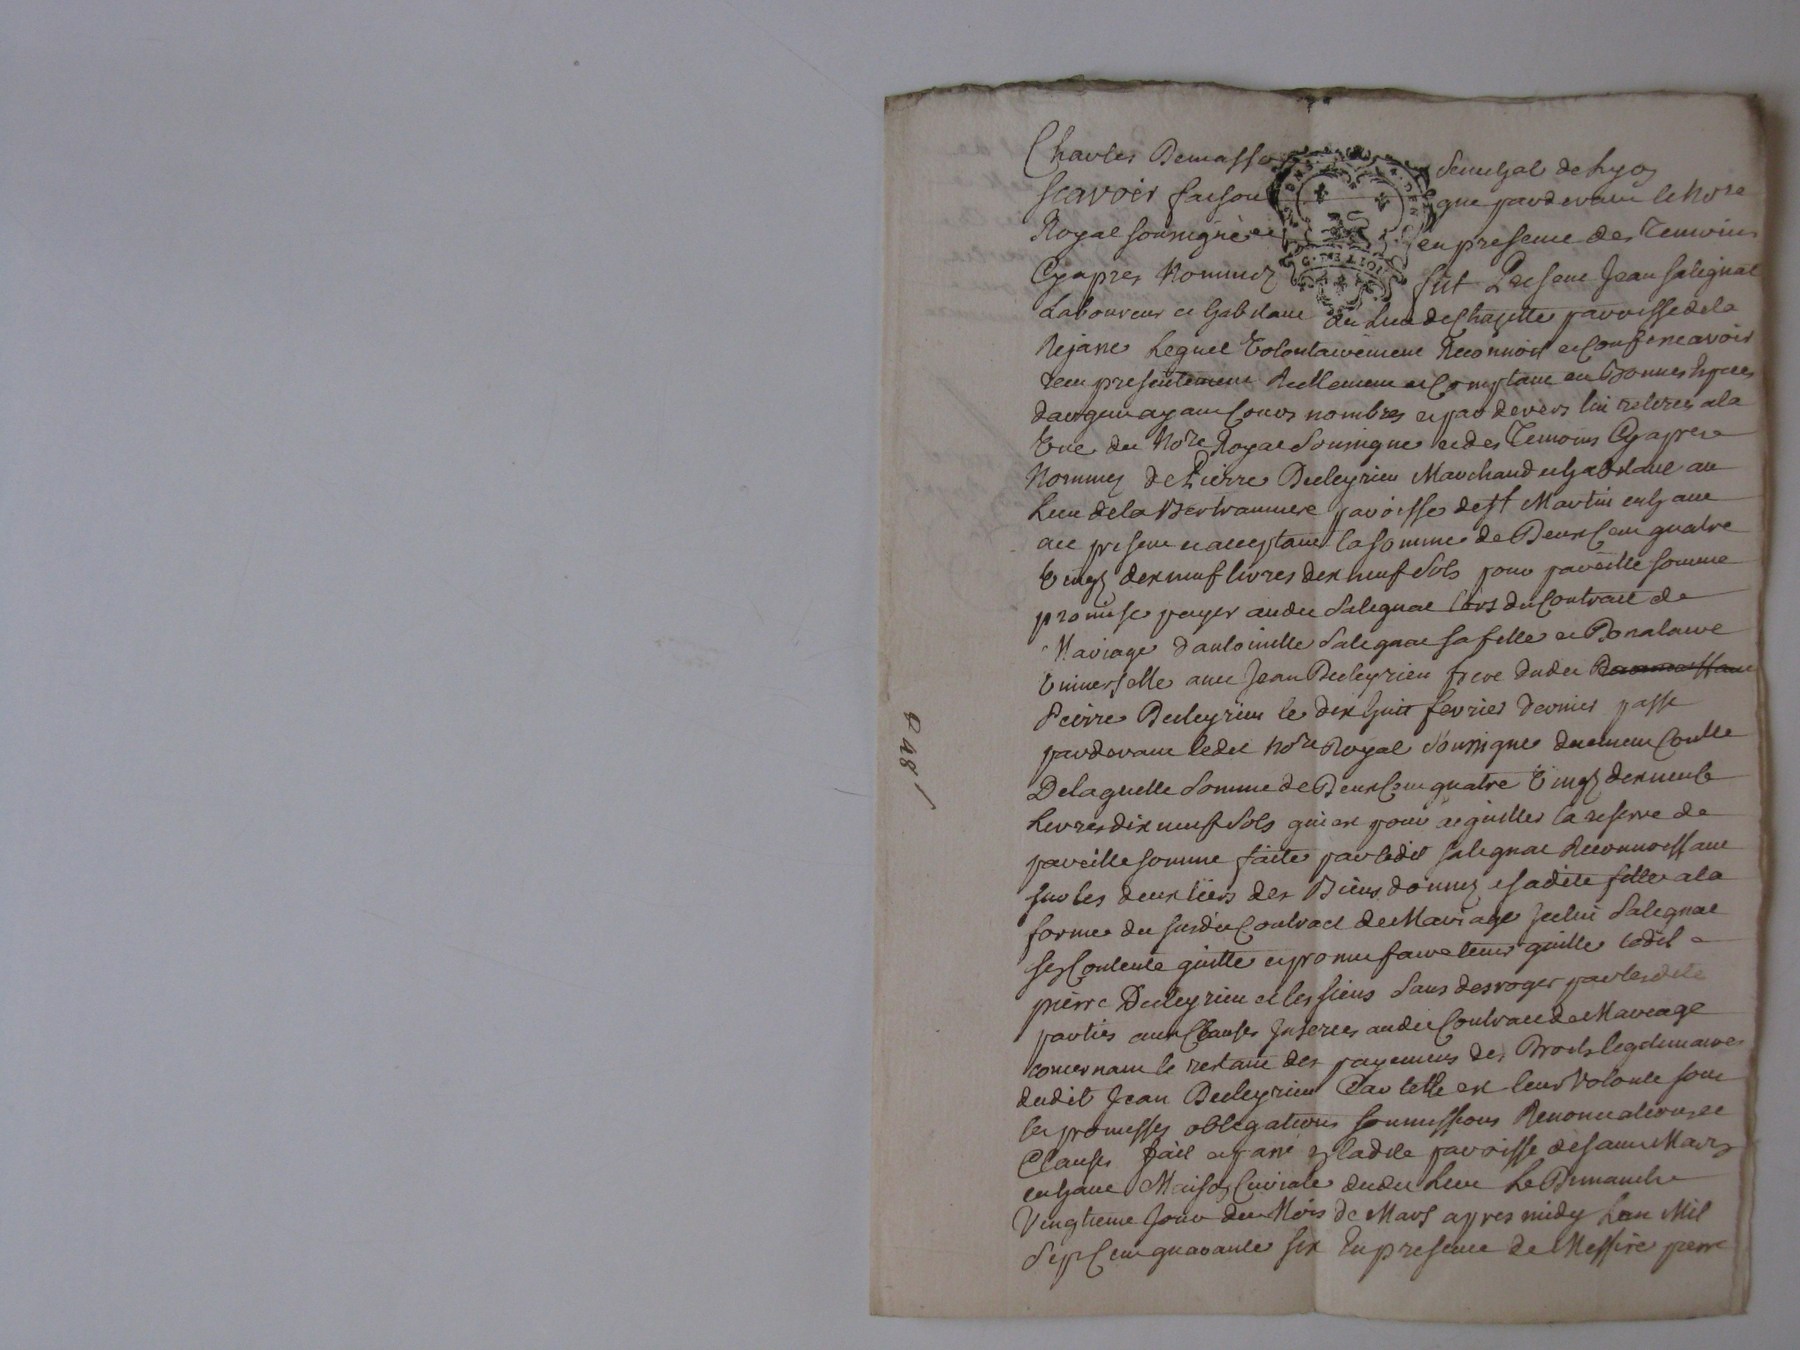 Charles Demasso Senechal de Lyon
scavoir faisons que pardevant le Nore
Royal soussigné et en presence des Temoins
Cyapres Nommez fut Present Jean Salignat
Laboureur et habitant du Lieu de Chazette parroisse de la
Rejasse Lequel Volontairement Reconnoit et Confesse avoir
receu presentement Reellement et Comptant en bonnes Especes
dargent ayant Cours nombrés et par devers lui retirés a la
Veue du Nore Royal Soussigne et des Temoins Cyapres
Nommez de Pierre Duleyrieu Marchand et habitant au
Lieu de la Bertranniere paroisse de St Martin en haut
ace present et acceptant la somme de Deux Cent quatre
Vingt dix neuf livres dix neuf sols pour pareille somme
promise payer audit Salignat lors du Contract de
Mariage d'antoinette Salignat sa fille et Donataire
Universelle avec Jean Duleyrieu frere dudit
Pierre Duleyrieu le dix huit fevrier dernier passé
pardevant ledit Nore Royal Soussigné duement Conllé
De laquelle Somme de Deux Cent quatre Vingt dix neuf
Livres dix neuf Sols qui est pour acquitter la reserve de
pareille somme faite par ledit Salignat Reconnoissant
sur les deux tiers des Biens donnez a sadite fille a la
forme du susdit Contract de Mariage Jcelui Salignat
ses Contente quitte et promet faire tenir quitte ledit
pierre Duleyrieu et les siens Sans desroger par lesdites
parties aux Clauses Jnserées audit Contract de Mariage
concernant le restant des payemens des Droits legitimaires
dudit Jean Duleyrieu Car telle est leur Volonte sous
les promesses obligations soumissions Renonciations et
Clauses fait et passé en ladite paroisse de Saint Martin
en haut Maison Curiale dudit Lieu Le Dimanche
Vingtieme Jour du Mois de Mars apres midy Lan Mil
Sept Cent quarante six En presence de Messire pierre